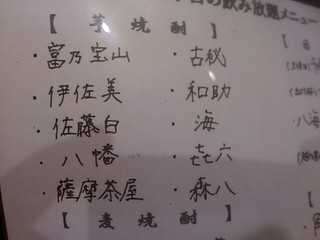 の飲み放題メニュー
【 芋焼酎 】
・富乃宝山
・伊佐美
・佐藤白
・八幡
・薩摩茶屋
・古秘
・和助
・海
・㐂六
・森八
【 麦焼酎 】
八海